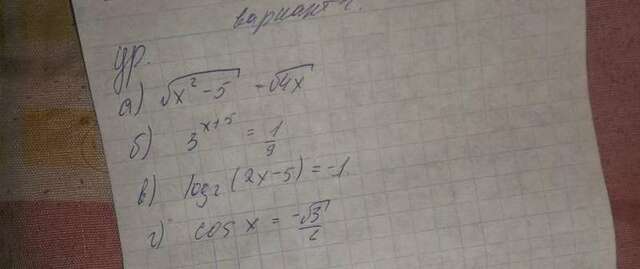 вариант 1.
ур.
а) √x²-5 = √4x
б) 3^x+5 = 1/9
в) log₂(2x-5) = -1
г) cos x = -√3/2